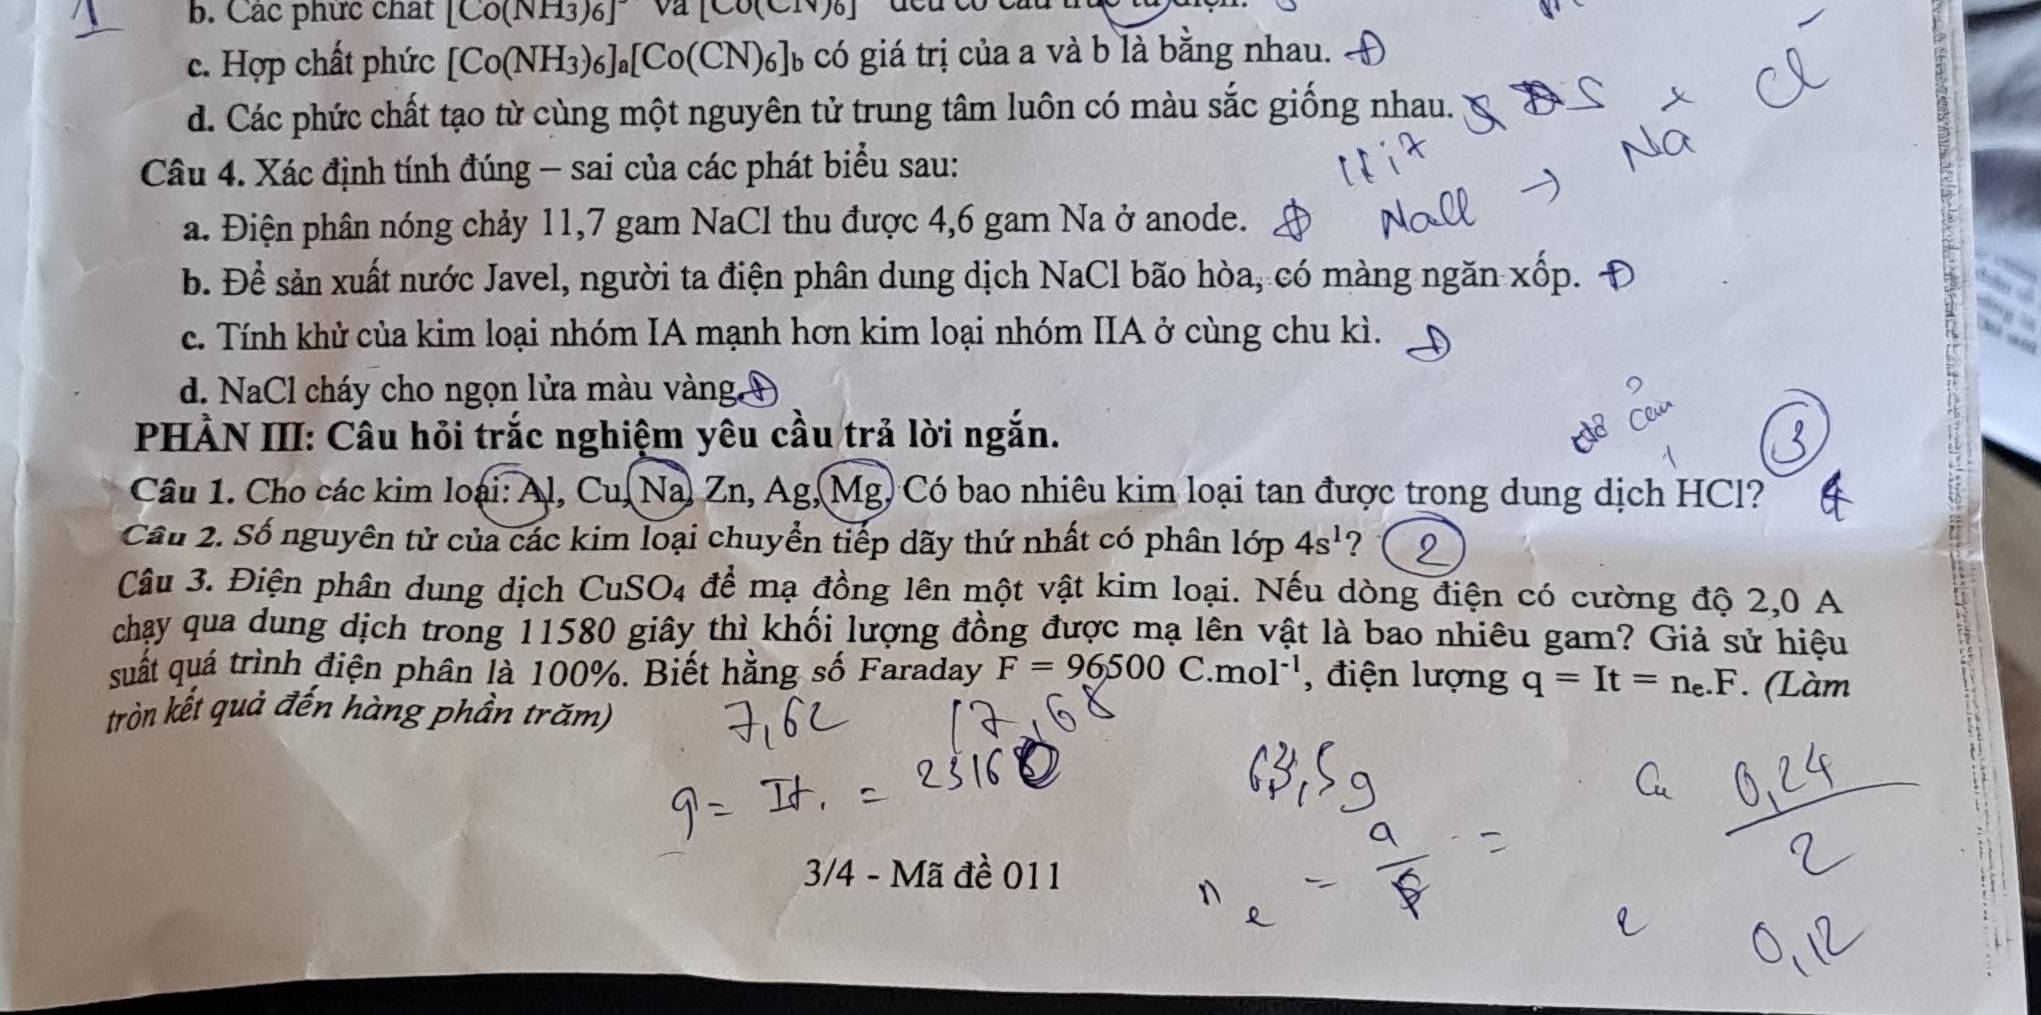 b. Các phức chất [Co(NH₃)₆] và [Co(CN)₆]
c. Hợp chất phức [Co(NH₃)₆]ₐ[Co(CN)₆]b có giá trị của a và b là bằng nhau. Đ
d. Các phức chất tạo từ cùng một nguyên tử trung tâm luôn có màu sắc giống nhau. S
Na Cl
Câu 4. Xác định tính đúng – sai của các phát biểu sau:
a. Điện phân nóng chảy 11,7 gam NaCl thu được 4,6 gam Na ở anode. Đ
b. Để sản xuất nước Javel, người ta điện phân dung dịch NaCl bão hòa, có màng ngăn xốp. Đ
c. Tính khử của kim loại nhóm IA mạnh hơn kim loại nhóm IIA ở cùng chu kì. Đ
d. NaCl cháy cho ngọn lửa màu vàng. Đ
PHẦN III: Câu hỏi trắc nghiệm yêu cầu trả lời ngắn.
3
Câu 1. Cho các kim loại: Al, Cu, Na, Zn, Ag, Mg. Có bao nhiêu kim loại tan được trong dung dịch HCl? 4
Câu 2. Số nguyên tử của các kim loại chuyển tiếp dãy thứ nhất có phân lớp 4s¹? 2
Câu 3. Điện phân dung dịch CuSO₄ để mạ đồng lên một vật kim loại. Nếu dòng điện có cường độ 2,0 A
chạy qua dung dịch trong 11580 giây thì khối lượng đồng được mạ lên vật là bao nhiêu gam? Giả sử hiệu
suất quá trình điện phân là 100%. Biết hằng số Faraday F = 96500 C.mol⁻¹, điện lượng q = It = nₑ.F. (Làm
tròn kết quả đến hàng phần trăm)
7,62 17,68
q = It. = 23160
63,5g
Cu 0,24
2
3/4 - Mã đề 011
n e = a =
e 0,12